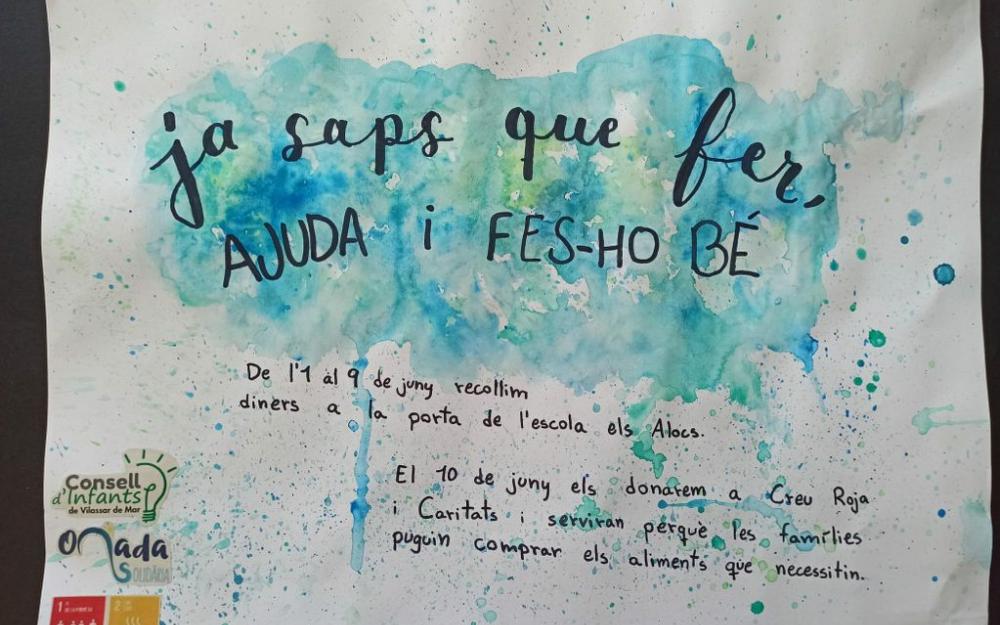 ja saps que fer,
AJUDA i FES-HO BÉ
De l'1 al 9 de juny recollim
diners a la porta de l'escola els Alocs.
El 10 de juny els donarem a Creu Roja
i Caritats i serviran perquè les famílies
puguin comprar els aliments que necessitin.
Consell
d'Infants
de Vilassar de Mar
Onada
SOLIDÀRIA
1
2